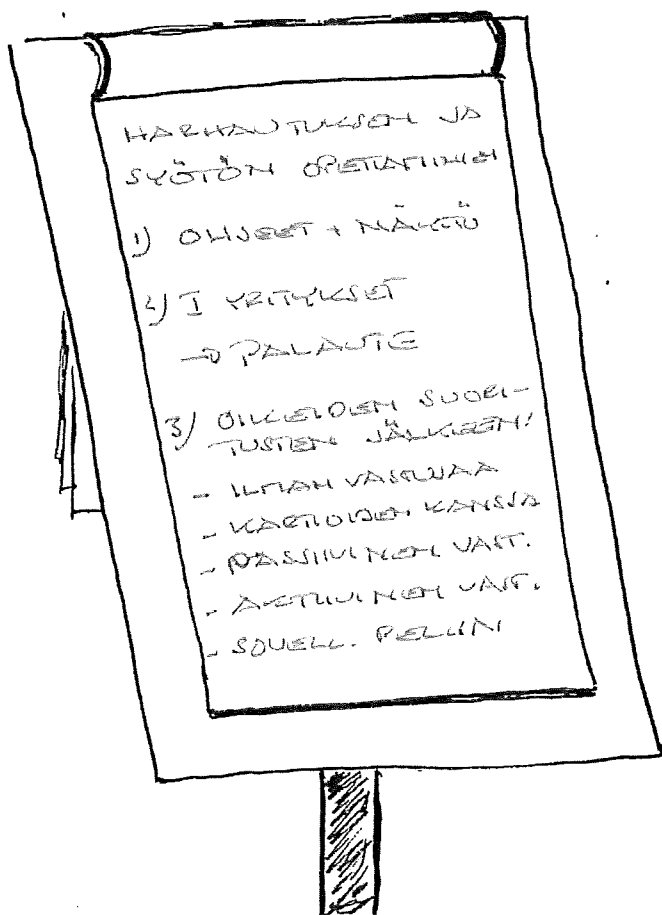 HARHAUTUKSEN JA
SYÖTÖN OPETTAMINEN
1) OHJEET + NÄYTTÖ
2) I YRITYKSET
→ PALAUTE
3) OIKEIDEN SUORI-
TUSTEN JÄLKEEN!
- ILMAN VASTUSTAJAA
- KARTIOIDEN KANSSA
- PASSIIVINEN VAST.
- AKTIIVINEN VAST.
- SOVELL. PELIIN